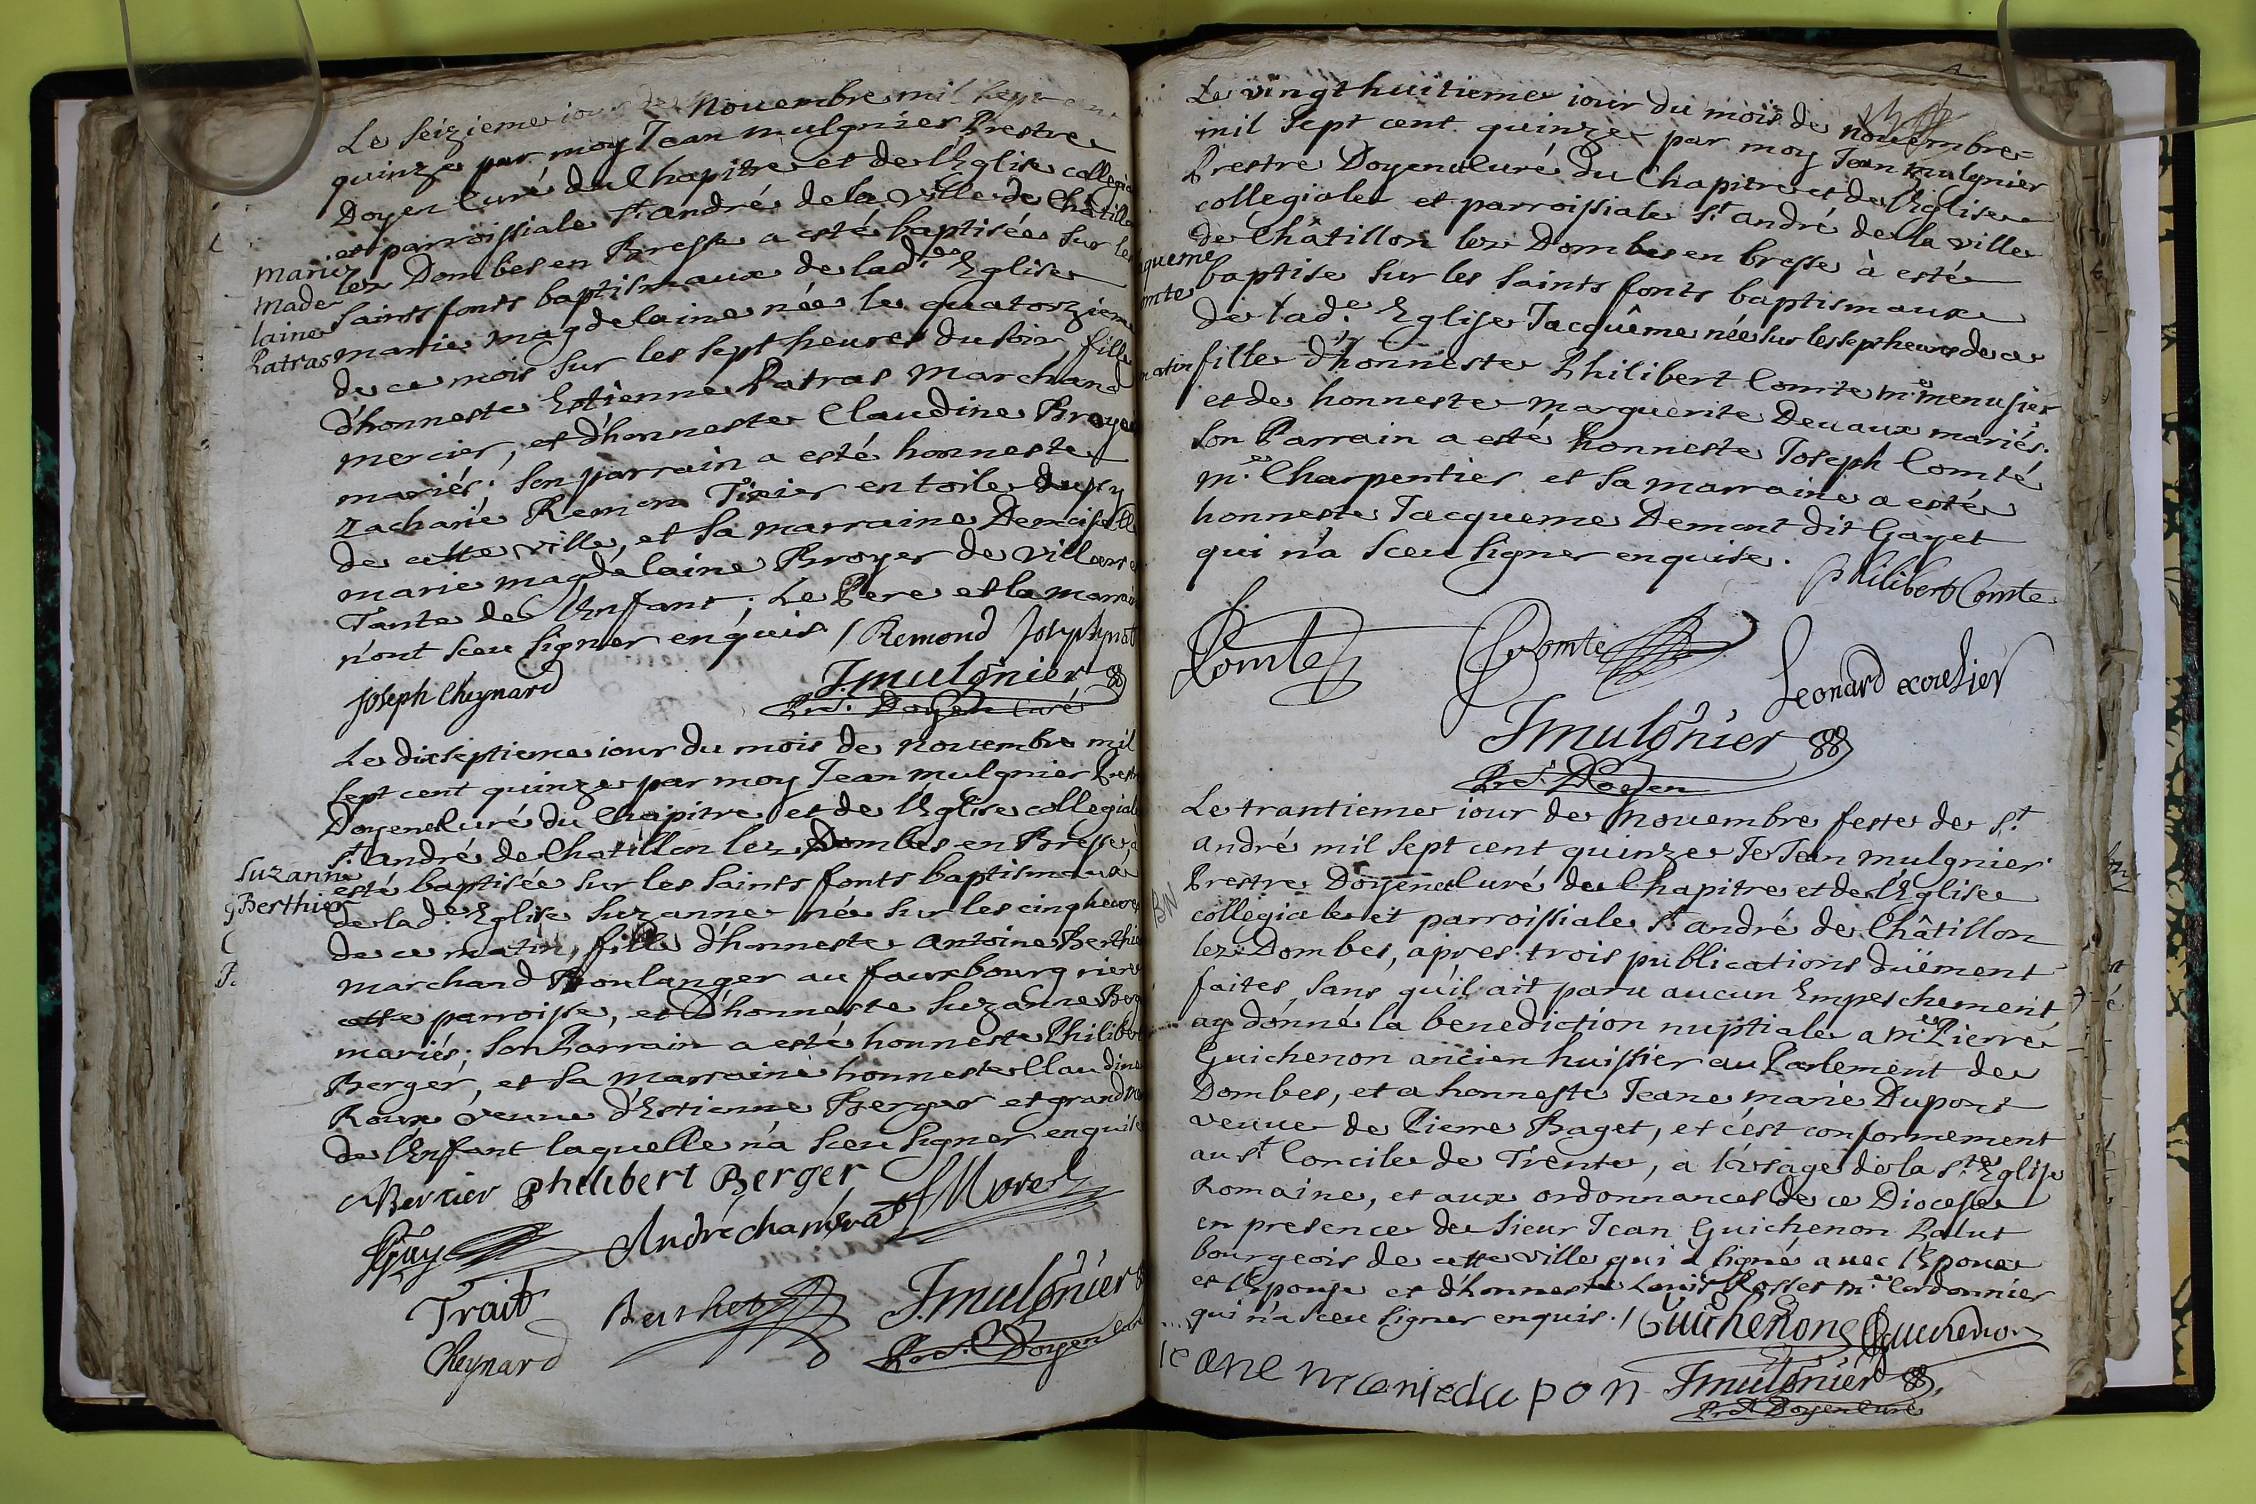 Le Seizieme iour de Nouembre mil sept cent
quinze par moy Jean mulgnier Prestre
Doyen Curé du Chapitre et de l'Eglise collegia
et parroissiale st. andré de la ville de Châtill
lez Dombes en Bresse a esté baptisée sur les
Saints fonts baptismaux de lad.e Eglise
marie magdelaine née le quatorzieme
de ce mois sur les sept heures du soir fille
d'honneste Estienne Patras marchand
mercier, et d'honneste Claudine Broyer
mariés; son parrain a esté honneste
Zacharie Remon Tixier en toile
de cette ville, et sa marraine Demoiselle
marie magdelaine Broyer de villars
Tante de l'Enfant; Le Pere et la marrai
n'ont sceu signer enquis / Remond Joseph
Joseph Cheynard JMulgnier
Pre. Doyen curé
Marie
Made
laine
Patras
Le dixseptieme iour du mois de nouembre mil
sept cent quinze par moy Jean mulgnier Prest
Doyen Curé du Chapitre et de l'Eglise collegiale
st. andré de Chatillon lez Dombes en Bresse à
esté baptisée sur les saints fonts baptismaux
de lad.e Eglise Suzanne née sur les cinq heures
de ce matin, fille d'honneste antoine Berthie
marchand Boulanger au fauxbourg riere
cette parroisse, et d'honneste Suzanne Berg
mariés; son Parrain a esté honneste Philiber
Berger, et sa marraine honneste Claudine
Roux veuue d'Estienne Berger et grand me
de l'Enfant laquelle n'a sceu signer enquise
Suzanne
Berthier
Bertier philibert Berger
Guy André Morel
Trait Berthet JMulgnier
Cheynard Pre. Doyen curé
Le vingt huitieme iour du mois de nouembre
mil sept cent quinze par moy Jean mulgnier
Prestre Doyen Curé du Chapitre et de l'Eglise
collegiale et parroissiale st. andré de la ville
de Châtillon lez Dombes en bresse à esté
baptise sur les saints fonts baptismaux
de lad.e Eglise Jacquême née sur les sept heures de ce
matin fille d'honneste Philibert Comte m.e menusier
et de honneste marguerite Deuaux mariés.
son Parrain a esté honneste Joseph Comté
m.e Charpentier et sa marraine a esté
honneste Jacqueme Demont dit Gayet
qui n'a sceu signer enquise.
queme
mte
Philibert Comte
Comte Comte
Leonard
JMulgnier
Pre. Doyen
Le trantieme iour de Nouembre feste de st.
andré mil sept cent quinze Je Jean mulgnier
Prestre Doyen Curé du Chapitre et de l'Eglise
collegiale et parroissiale st andré de Châtillon
lez Dombes, apres trois publications duëment
faites, sans qu'il ait paru aucun Empeschement
ay donné la benediction nuptiale a m.e Pierre
Guichenon ancien huissier au Parlement de
Dombes, et a honneste Jeane marie Dupont
veuue de Pierre Baget, et c'est conformement
au st. Concile de Trente, à l'vsage de la s.te Eglise
Romaine, et aux ordonnances de ce Diocese
en presence de sieur Jean Guichenon Palut
bourgeois de cette ville qui a signé auec l'Epoux
et l'Epouse et d'honneste Louis Rosset m.e Cordonnier
qui n'a sceu signer enquis. / Guichenon Guichenon
Jeane marie du pon JMulgnier
Pre. Doyen Curé